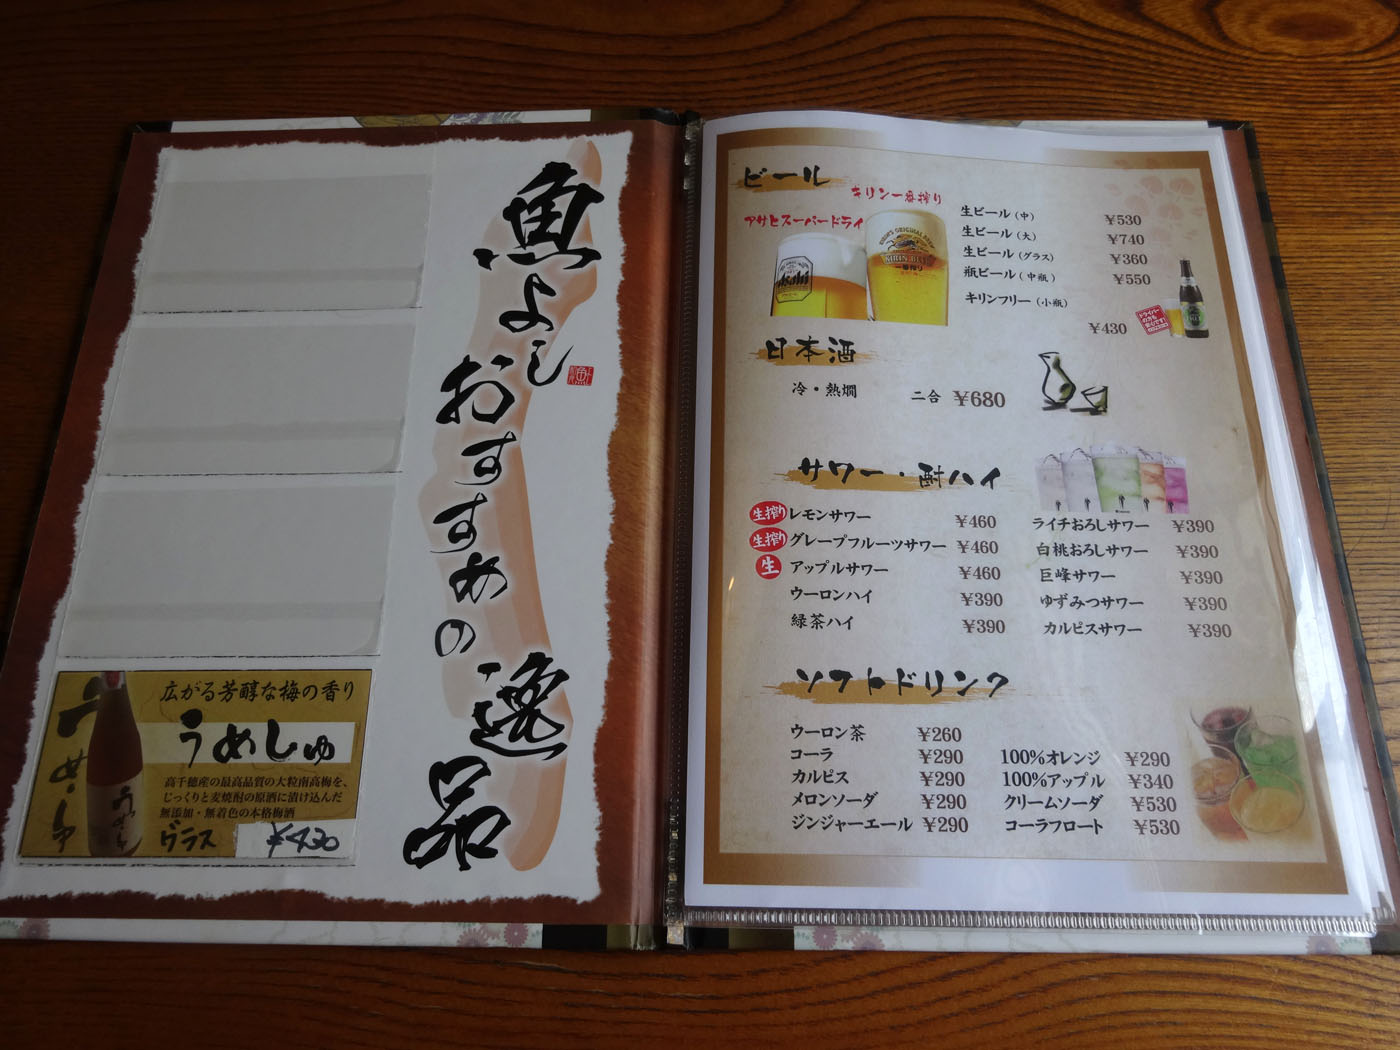 魚よし おすすめの一逸品
広がる芳醇な梅の香り
うめしゅ
うめしゅ
高千穂産の最高品質の大粒南高梅を、
じっくりと麦焼酎の原酒に漬け込んだ
無添加・無着色の本格梅酒
グラス ¥430
ビール
キリン一番搾り
アサヒスーパードライ
Asahi
KIRIN'S ORIGINAL BREW
KIRIN BEER
一番搾り
生ビール(中) ¥530
生ビール(大) ¥740
生ビール(グラス) ¥360
瓶ビール(中瓶) ¥550
キリンフリー(小瓶)
¥430
日本酒
冷・熱燗 二合 ¥680
サワー・酎ハイ
生搾り レモンサワー ¥460
生搾り グレープフルーツサワー ¥460
生 アップルサワー ¥460
ウーロンハイ ¥390
緑茶ハイ ¥390
ライチおろしサワー ¥390
白桃おろしサワー ¥390
巨峰サワー ¥390
ゆずみつサワー ¥390
カルピスサワー ¥390
ソフトドリンク
ウーロン茶 ¥260
コーラ ¥290
カルピス ¥290
メロンソーダ ¥290
ジンジャーエール ¥290
100%オレンジ ¥290
100%アップル ¥340
クリームソーダ ¥530
コーラフロート ¥530